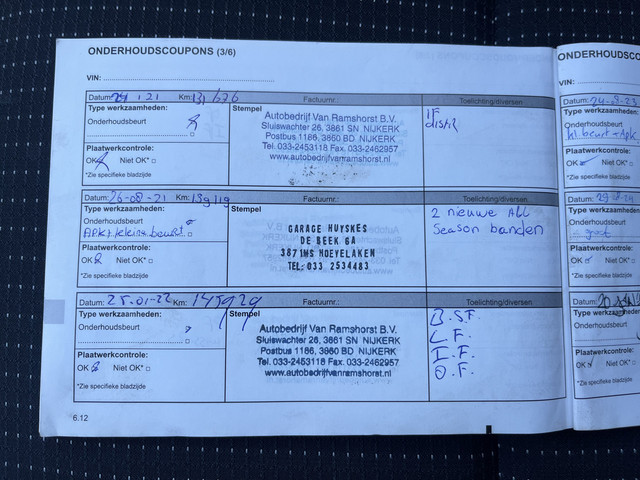 ONDERHOUDSCOUPONS (3/6)
VIN:
Datum: Km: Factuurnr.: Toelichting/diversen
Type werkzaamheden:
Onderhoudsbeurt
Stempel
Autobedrijf Van Ramshorst B.V.
Sluiswachter 26, 3861 SN NIJKERK
Postbus 1186, 3860 BD NIJKERK
Tel. 033-2453118 Fax. 033-2462957
www.autobedrijfvanramshorst.nl
Plaatwerkcontrole:
OK Niet OK*
*Zie specifieke bladzijde
Datum: 26-08-21 Km: 139119 Factuurnr.: Toelichting/diversen
Type werkzaamheden:
Onderhoudsbeurt
APK + kleine beurt
Stempel
GARAGE HUYSKES
DE BEEK 6A
3871MS HOEVELAKEN
TEL: 033 2534483
2 nieuwe All
Season banden
Plaatwerkcontrole:
OK Niet OK*
*Zie specifieke bladzijde
Datum: 25-01-22 Km: 145929 Factuurnr.: Toelichting/diversen
Type werkzaamheden:
Onderhoudsbeurt
Stempel
Autobedrijf Van Ramshorst B.V.
Sluiswachter 26, 3861 SN NIJKERK
Postbus 1186, 3860 BD NIJKERK
Tel. 033-2453118 Fax. 033-2462957
www.autobedrijfvanramshorst.nl
B.S.F.
L.F.
I.F.
O.F.
Plaatwerkcontrole:
OK Niet OK*
*Zie specifieke bladzijde
6.12
ONDERHOUDSCO
VIN:
Datum: 24-08-23
Type werkzaamheden:
Onderhoudsbeurt
kl. beurt + Apk
Plaatwerkcontrole:
OK Niet OK*
*Zie specifieke bladzijde
Datum:
Type werkzaamheden:
Onderhoudsbeurt
groot
Plaatwerkcontrole:
OK Niet OK*
*Zie specifieke bladzijde
Datum:
Type werkzaamheden:
Onderhoudsbeurt
Plaatwerkcontrole:
OK Niet OK*
*Zie specifieke bladzijde